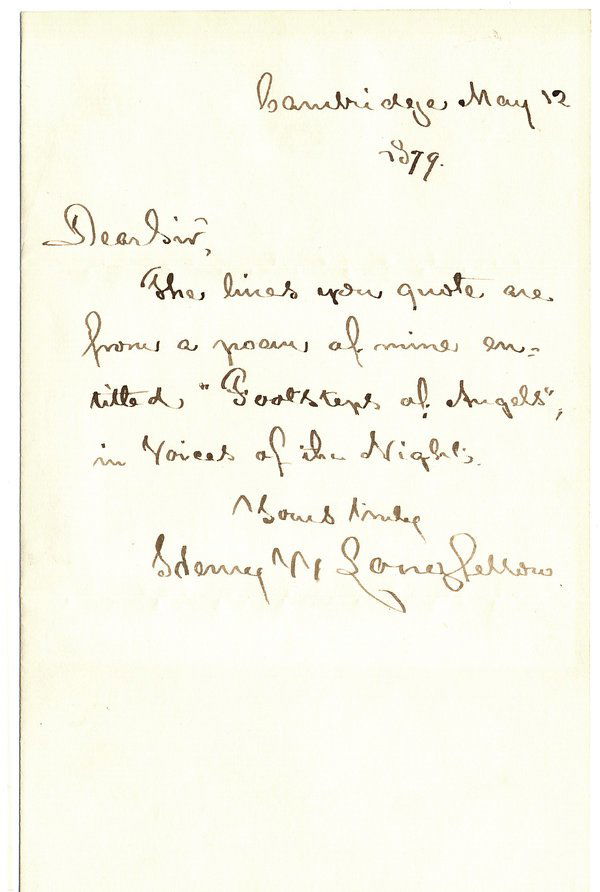 Cambridge May 12
1879.
Dear Sir,
The lines you quote are
from a poem of mine en-
titled "Footsteps of Angels",
in Voices of the Night.
Yours truly
Henry W Longfellow